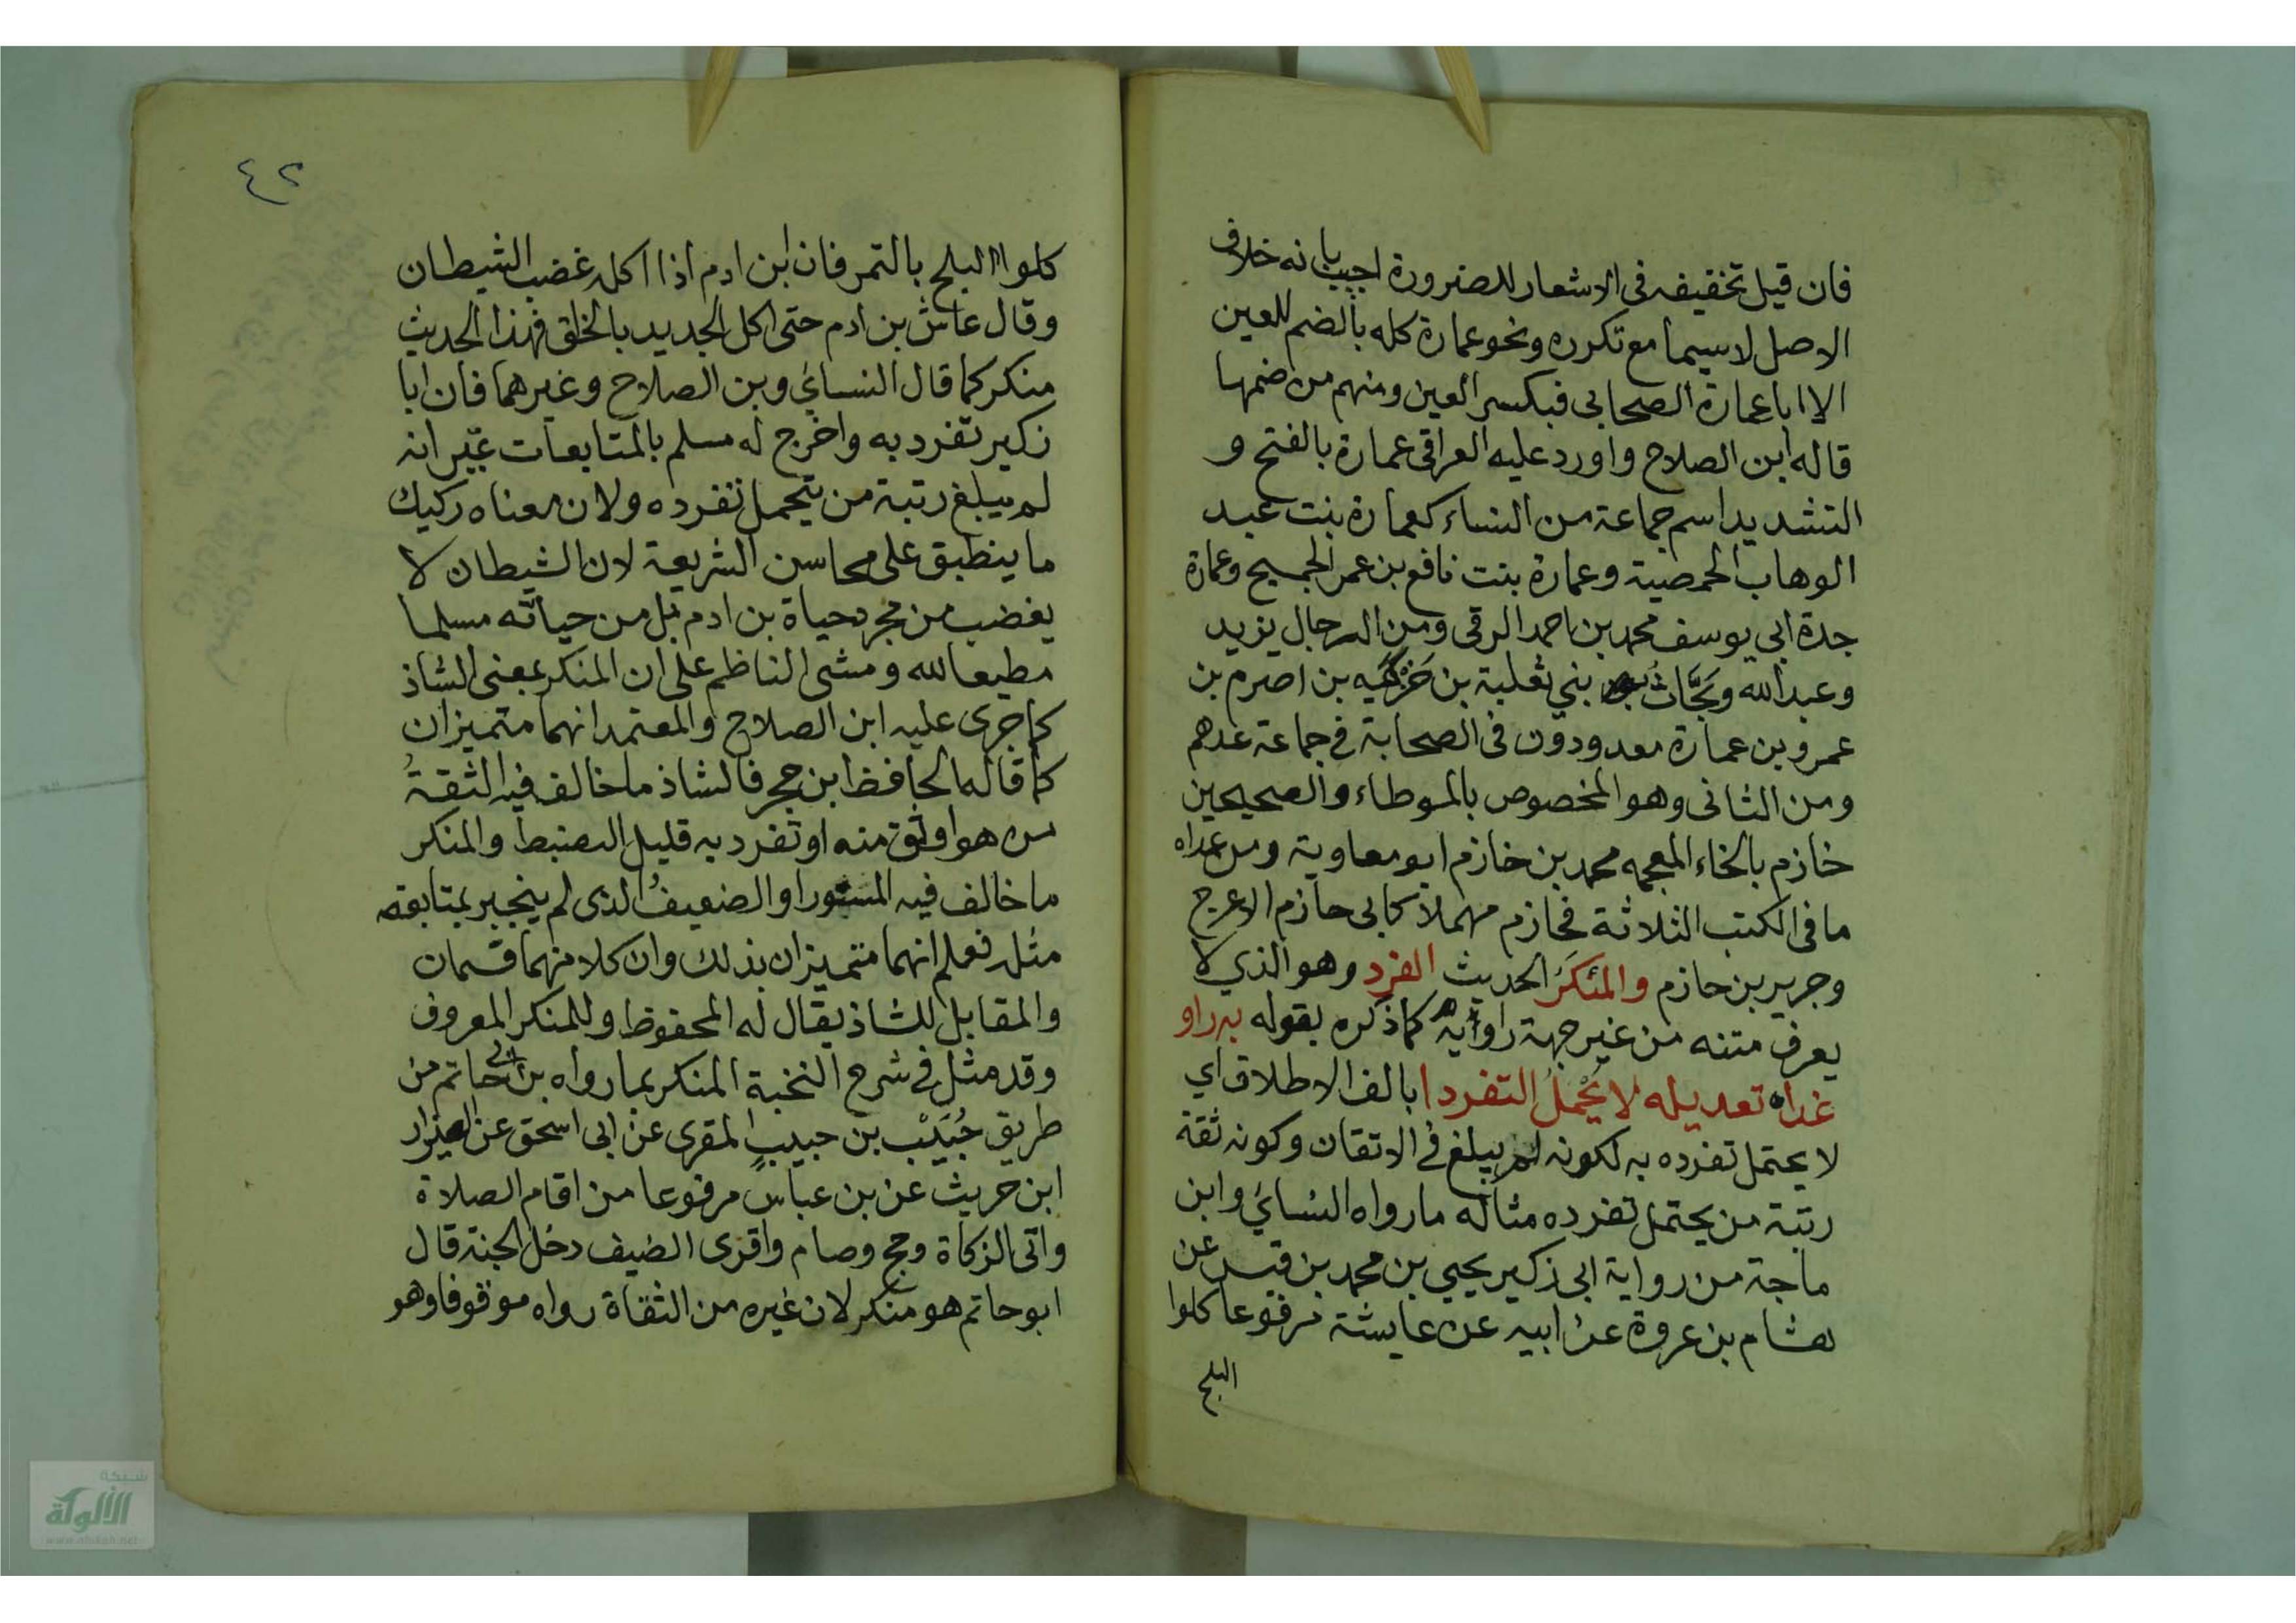 فان قيل تخفيفه فى الاشعار للضرورة اجيب بانه خلاف
الاصل لاسيما مع تكرره ونحو عمارة كله بالضم للعين
الا ابا عمارة الصحابى فبكسر العين ومنهم من ضمها
قاله ابن الصلاح واورد عليه العراقى عمارة بالفتح و
التشديد اسم جماعة من النساء كعمارة بنت عبد
الوهاب الحمصية وعمارة بنت نافع بن عمر الجمحي وعمارة
جدة ابي يوسف محمد بن احمد الرقى ومن الرجال يزيد
وعبد الله وبَحَّاث بني ثعلبة بن خَزْمَة بن اصرم بن
عمرو بن عمارة معدودون فى الصحابة في جماعة عدهم
ومن الثانى وهو المخصوص بالموطاء والصحيحين
خازم بالخاء المعجمه محمد بن خازم ابو معاوية ومن عداه
ما فى الكتب الثلاثة فحازم مهملا كابى حازم الاعرج
وجرير بن حازم والمُنكَرُ الحديث الفرد وهو الذي لا
يعرف متنه من غير جهة راويه كما ذكره بقوله به راو
غدا تعديله لا يُحْمَلُ التفردا بالف الاطلاق اي
لا يحتمل تفرده به لكونه لم يبلغ في الاتقان وكونه ثقة
رتبة من يحتمل تفرده مثاله ما رواه النسائي وابن
ماجة من رواية ابى زكير يحيي بن محمد بن قيس عن
هشام بن عروة عن ابيه عن عايشة مرفوعا كلوا
البلح
٤٢
كلوا البلح بالتمر فان ابن ادم اذا اكله غضب الشيطان
وقال عاش بن ادم حتى اكل الجديد بالخلق فهذا الحديث
منكر كما قال النسائي وبن الصلاح وغيرهما فان ابا
زكير تفرد به واخرج له مسلم بالمتابعات غير انه
لم يبلغ رتبة من يتحمل تفرده ولان معناه ركيك
ما ينطبق على محاسن الشريعة لان الشيطان لا
يغضب من مجرد حياة بن ادم بل من حياته مسلما
مطيعا لله ومشى الناظم على ان المنكر بمعنى الشاذ
كما جرى عليه ابن الصلاح والمعتمد انهما متميزان
كما قاله الحافظ ابن حجر فالشاذ ما خالف فيه الثقةُ
من هو اوثق منه او تفرد به قليل الضبط والمنكر
ما خالف فيه المستور او الضعيفُ الذى لم ينجبر بمتابعة
مثله فعلم انهما متميزان بذلك وان كلا منهما قسمان
والمقابل للشاذ يقال له المحفوظ وللمنكر المعروف
وقد مثل في شرح النخبة المنكر بما رواه بن ابى حاتم من
طريق حُبَيِّب بن حبيبٍ المقرى عن ابى اسحق عن العيزار
ابن حريث عن بن عباس مرفوعا من اقام الصلاة
واتى الزكاة وحج وصام واقرى الضيف دخل الجنة قال
ابو حاتم هو منكر لان غيره من الثقاة رواه موقوفا وهو
شبكة
الألوكة
www.alukah.net